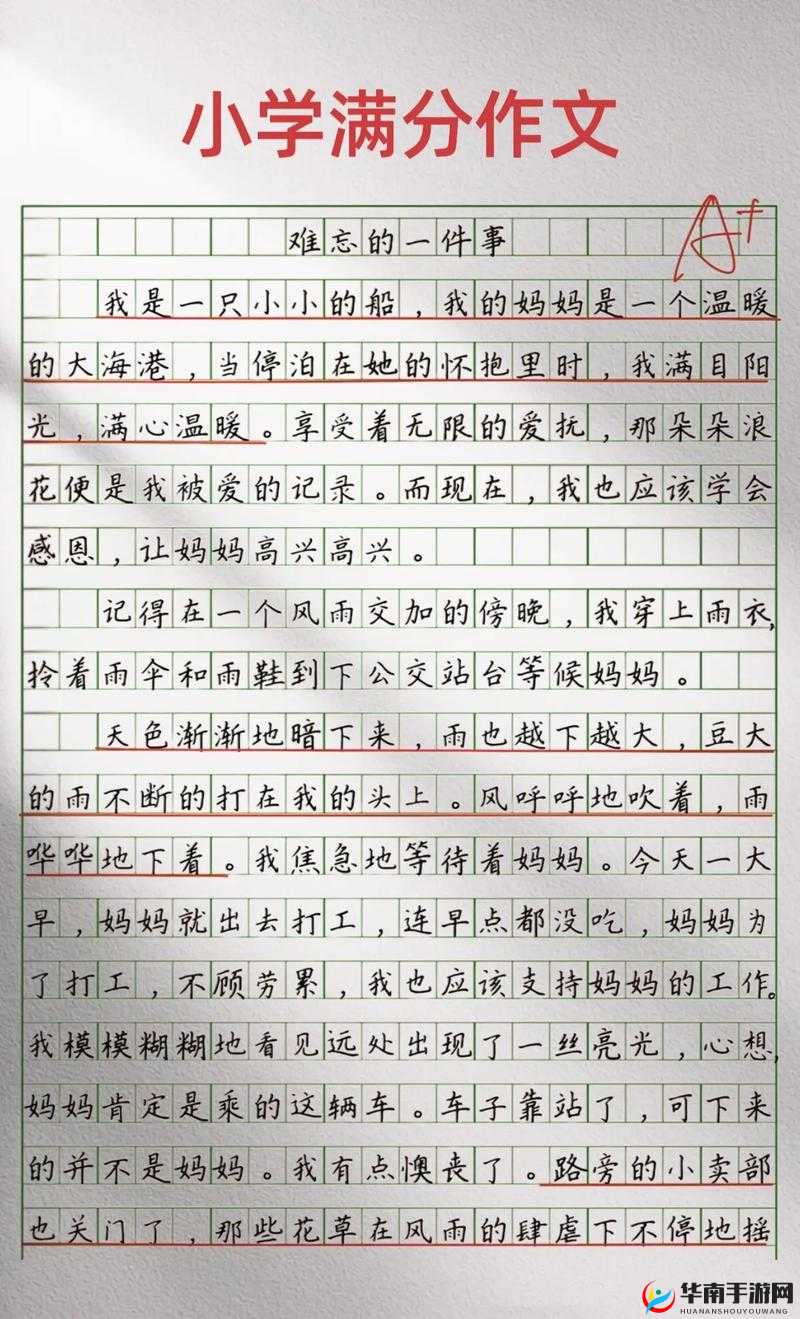 小学满分作文
A+
难忘的一件事
我是一只小小的船，我的妈妈是一个温暖
的大海港，当停泊在她的怀抱里时，我满目阳
光，满心温暖。享受着无限的爱抚，那朵朵浪
花便是我被爱的记录。而现在，我也应该学会
感恩，让妈妈高兴高兴。
记得在一个风雨交加的傍晚，我穿上雨衣，
拎着雨伞和雨鞋到下公交站台等候妈妈。
天色渐渐地暗下来，雨也越下越大，豆大
的雨不断的打在我的头上。风呼呼地吹着，雨
哗哗地下着。我焦急地等待着妈妈。今天一大
早，妈妈就出去打工，连早点都没吃，妈妈为
了打工，不顾劳累，我也应该支持妈妈的工作。
我模模糊糊地看见远处出现了一丝亮光，心想，
妈妈肯定是乘的这辆车。车子靠站了，可下来
的并不是妈妈。我有点懊丧了。路旁的小卖部
也关门了，那些花草在风雨的肆虐下不停地摇
华南手游网
HUANANSHOUYOUWANG